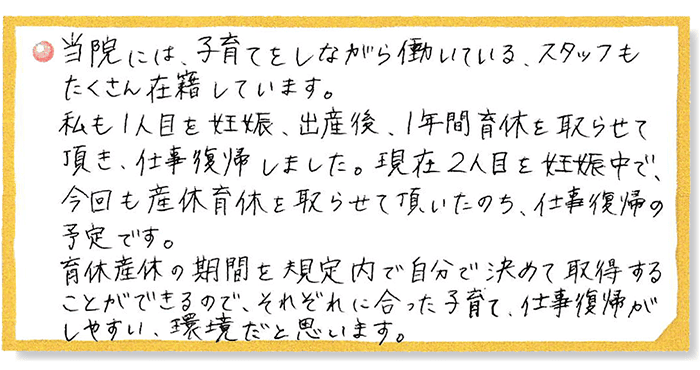 当院には、子育てをしながら働いている、スタッフも
たくさん在籍しています。
私も1人目を妊娠、出産後、1年間育休を取らせて
頂き、仕事復帰しました。現在2人目を妊娠中で、
今回も産休育休を取らせて頂いたのち、仕事復帰の
予定です。
育休産休の期間を規定内で自分で決めて取得する
ことができるので、それぞれに合った子育て、仕事復帰が
しやすい、環境だと思います。